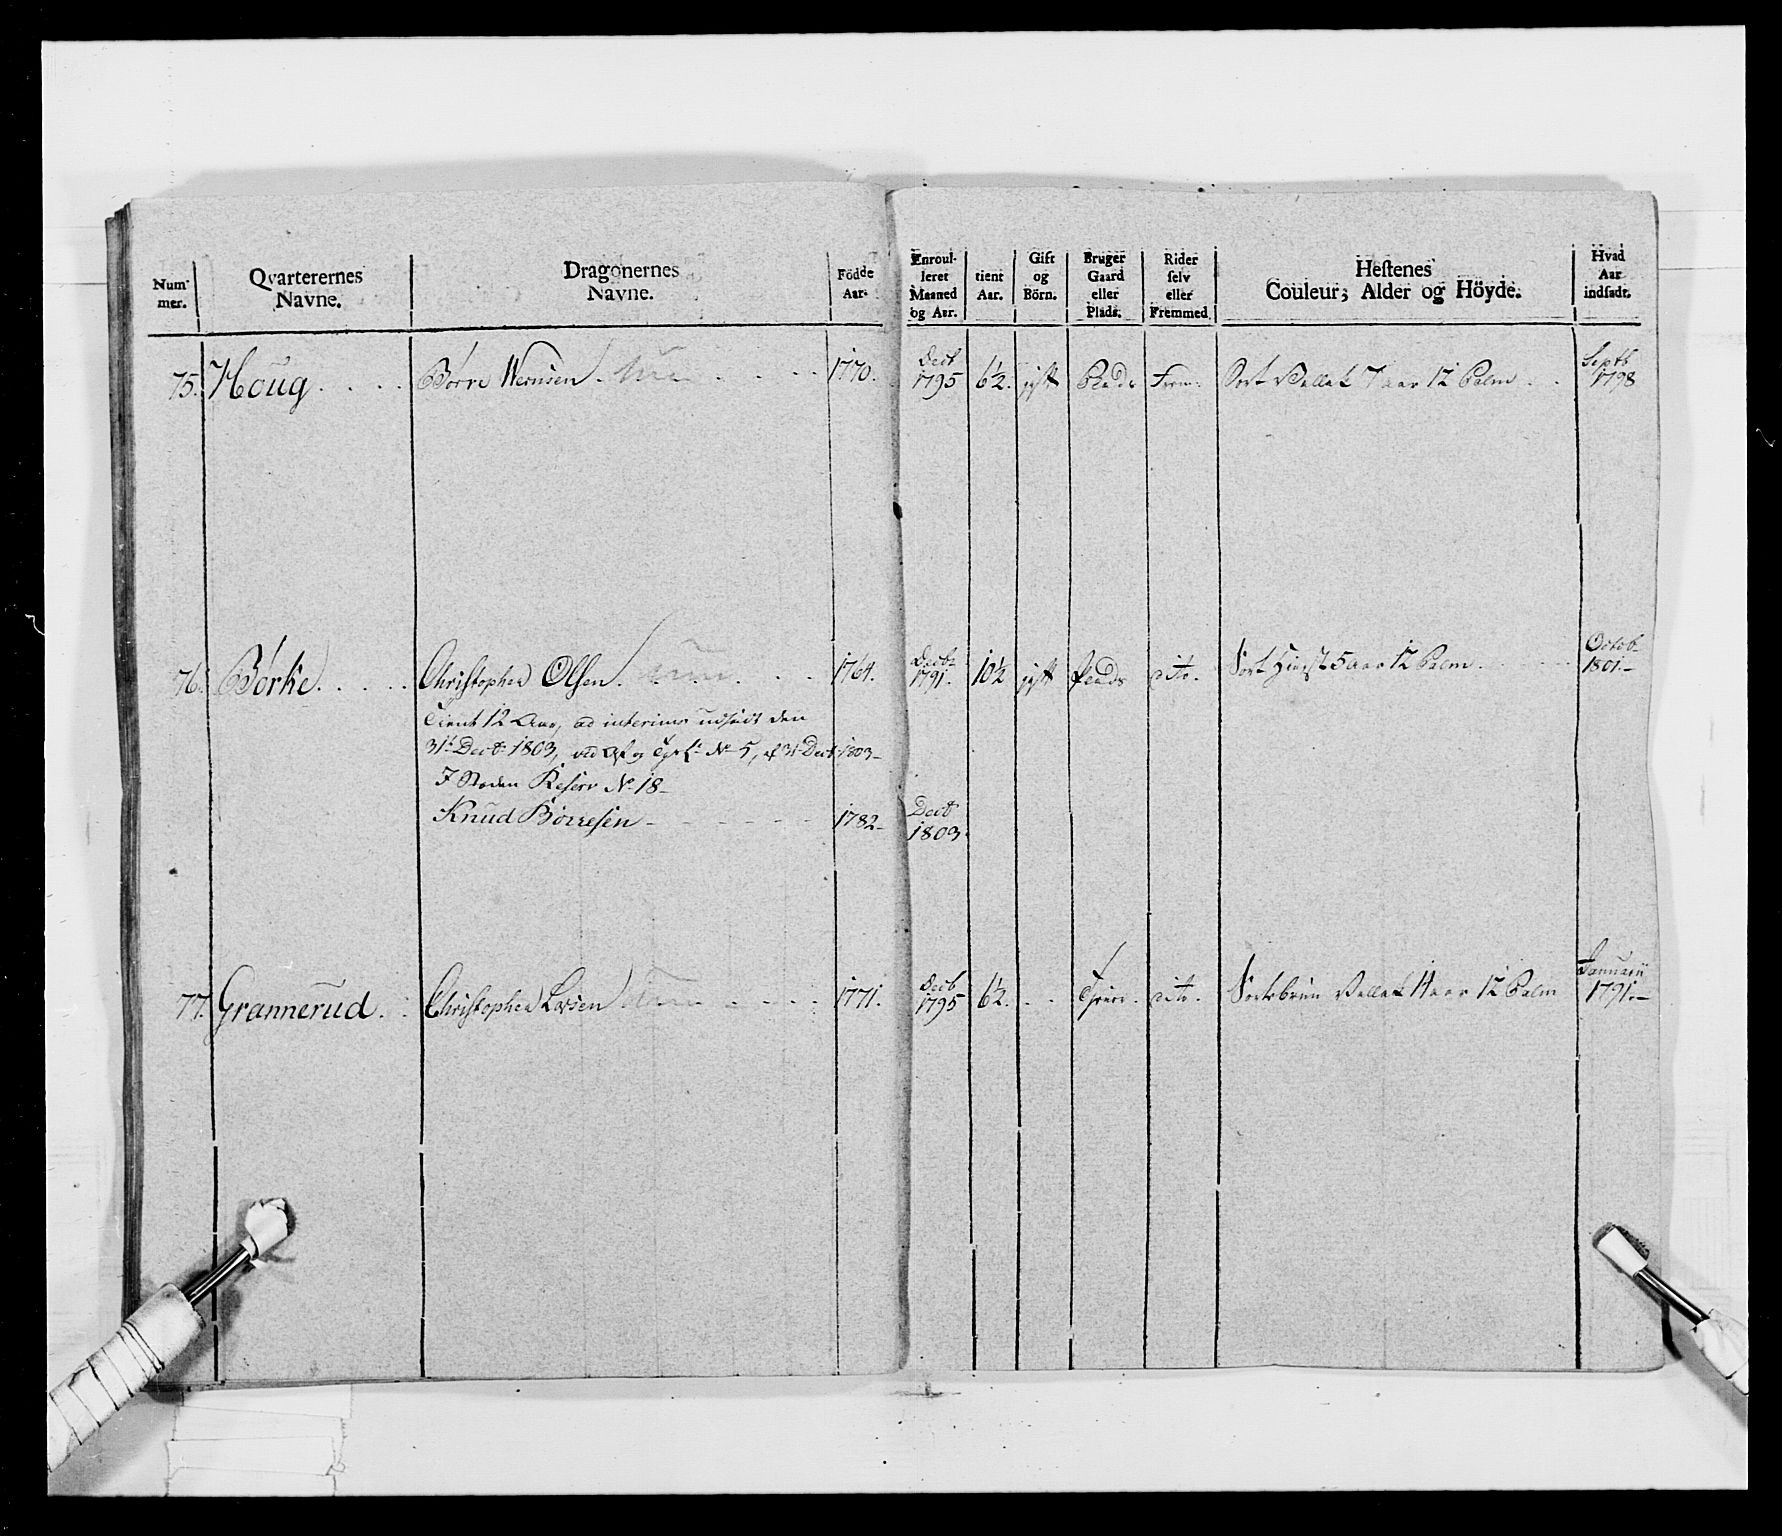 Num-
mer.
Qvarterernes
Navne.
Dragonernes
Navne.
Födde
Aar.
Enroul-
leret
Maaned
og Aar.
tient
Aar.
Gift
og
Börn.
Bruger
Gaard
eller
Plads.
Rider
selv
eller
Fremmed
Hestenes
Couleur, Alder og Höyde.
Hvad
Aar
indsadt.
75. Houg. Børre Wernsen. 1770. Decb 1795 6½. gift Plads Frem. Sort Vallak 7 aar 12 Palm Septb 1798
76. Børke. Christopher Olsen. 1764. Decbr 1791. 10½ gift Plads dito. Sort Hingst 5 aar 12 Palm Octob 1801
Tient 12 Aar, ad interims udsadt den
31t Decb 1803, ved No 5, af 31 Decb 1803
I Steden Reserv No 18
Knud Börresen 1782 Decb 1803
77. Grannerud. Christopher Larsen 1771. Decb 1795 6½. dito. Sortebrun Vallak 14 aar 12 Palm Januarii 1791.